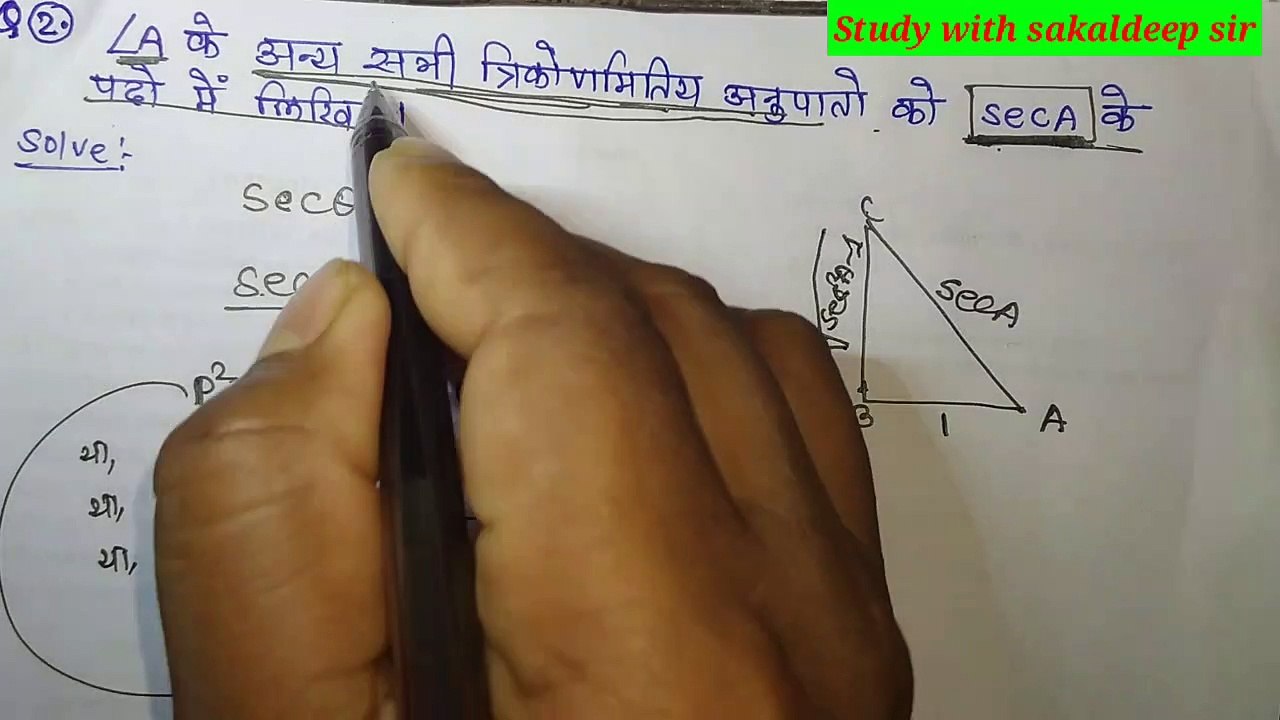 Study with sakaldeep sir
Q 2. ∠A के अन्य सभी त्रिकोणमितिय अनुपातो को secA के
पदो में
Solve:-
C
√sec²A-1
secA
B
1
A
P²
या,
या,
या,